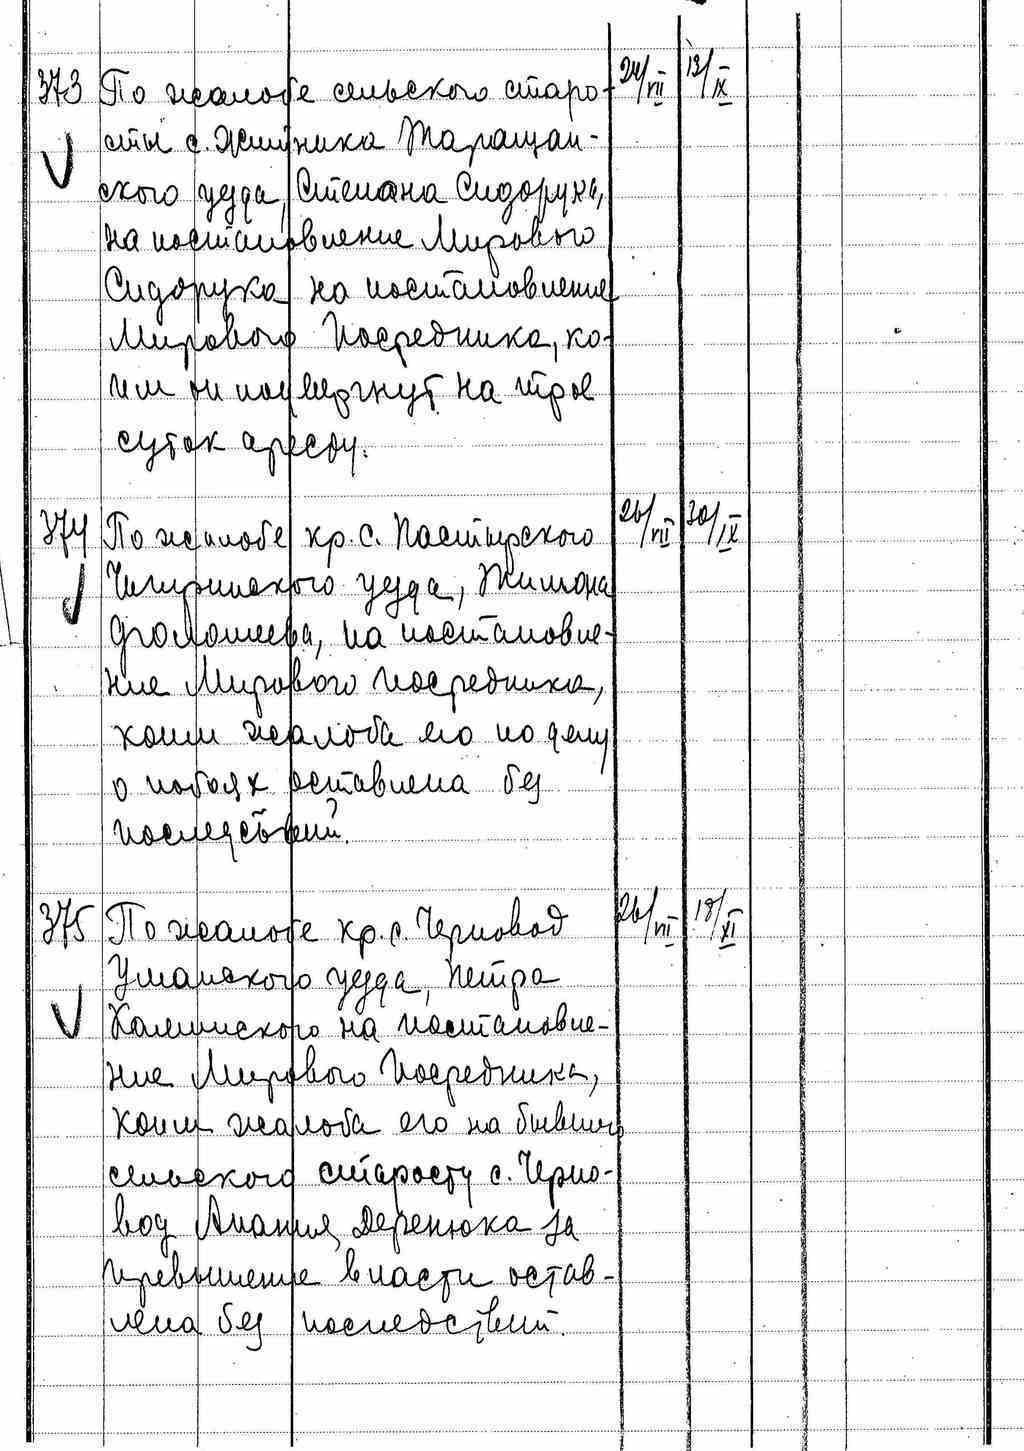 373 По жалобе сельского старо- 24/VII 13/IX
сты с. Житника Таращан-
ского уезда, Степана Сидорука,
на постановление Мирового
Сидорука на постановление
Мирового Посредника, ко-
им он подвергнут на трое
суток аресту.
374 По жалобе кр. с. Пастырского 26/VII 30/IX
Чигиринского уезда,
на постановле-
ние Мирового посредника,
коим жалоба его по делу
о побоях оставлена без
последствий.
375 По жалобе кр. с. Черповод 26/VII 18/XI
Уманского уезда, Петра
Калинского на постановле-
ние Мирового Посредника,
коим жалоба его на бывшего
сельского старосту с. Черпо-
вод Анания Деренюка за
превышение власти остав-
лена без последствий.